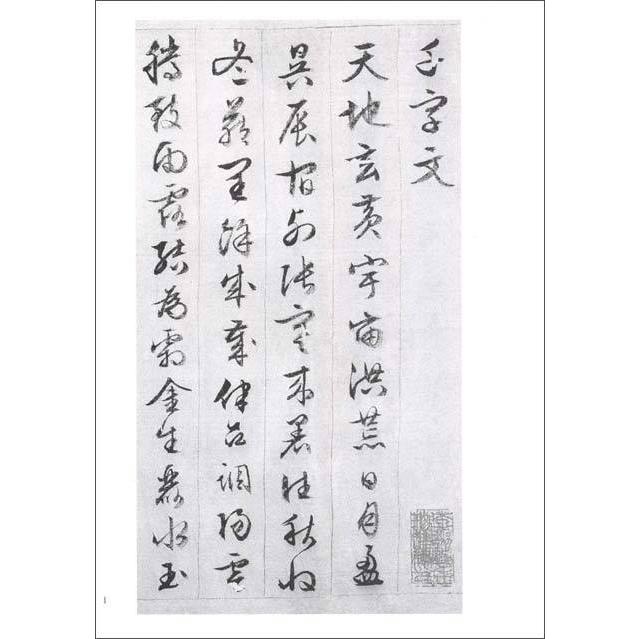 千字文
天地玄黃宇宙洪荒日月盈
昃辰宿列張寒來暑往秋收
冬藏閏餘成歲律呂調陽雲
騰致雨露結為霜金生麗水玉
1